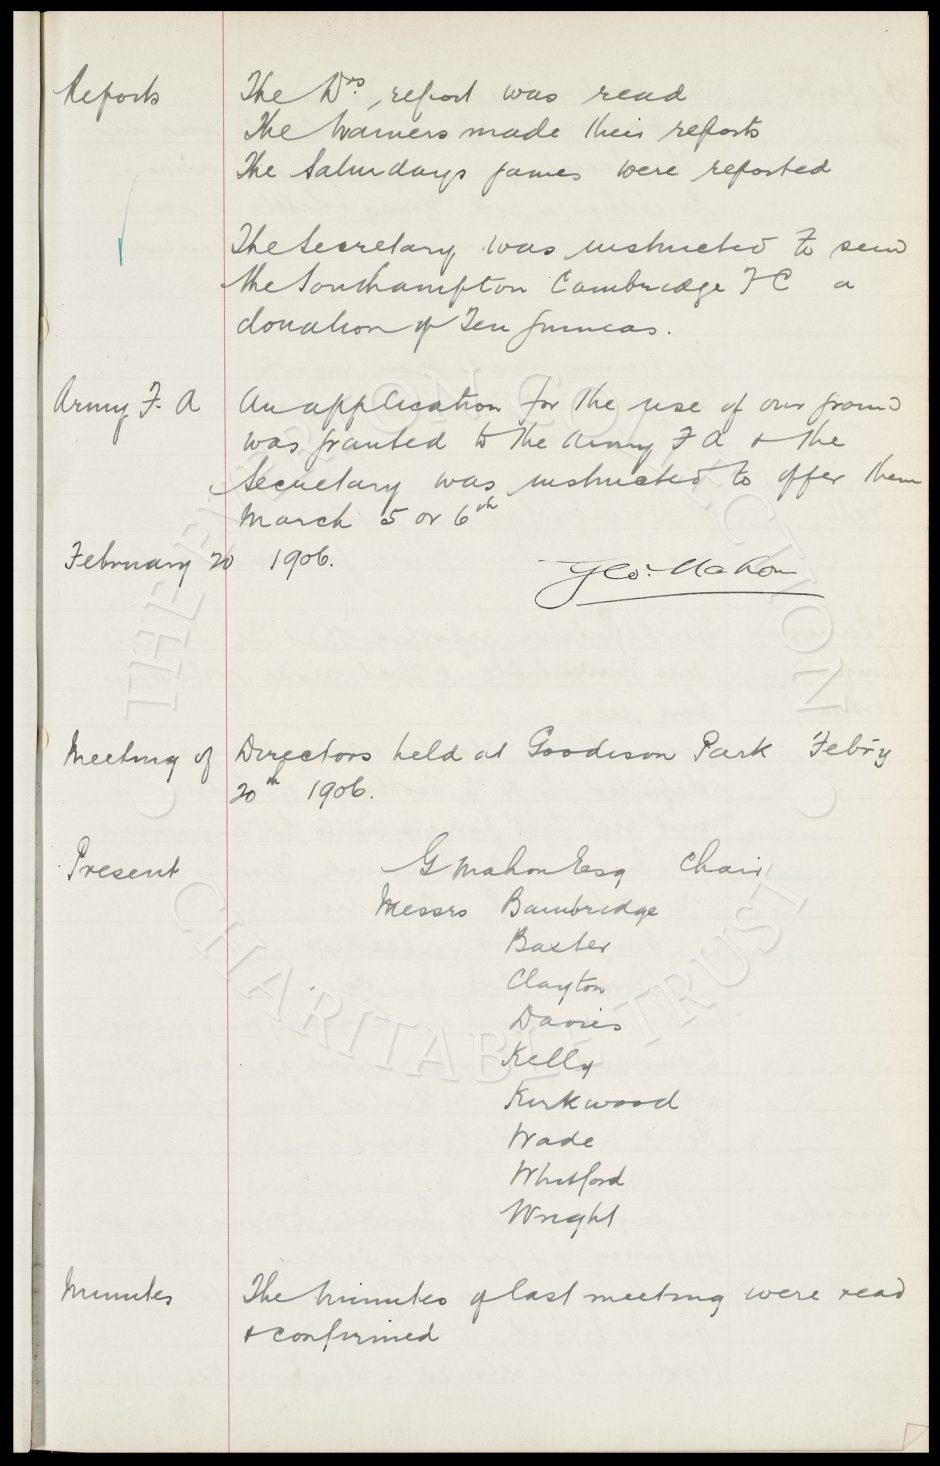 Reports The Drs. report was read
The trainers made their reports
The Saturdays games were reported
The Secretary was instructed to send
the Southampton Cambridge F C a
donation of Ten guineas.
Army F. A An application for the use of our ground
was granted to the Army F A & the
Secretary was instructed to offer them
March 5 or 6th
February 20 1906.
Geo. Mahon
Meeting of Directors held at Goodison Park Febry
20th 1906.
Present G Mahon Esq Chair
Messrs Bainbridge
Baxter
Clayton
Davies
Kelly
Kirkwood
Wade
Whitford
Wright
Minutes The minutes of last meeting were read
& confirmed
THE EVERTON COLLECTION
CHARITABLE TRUST